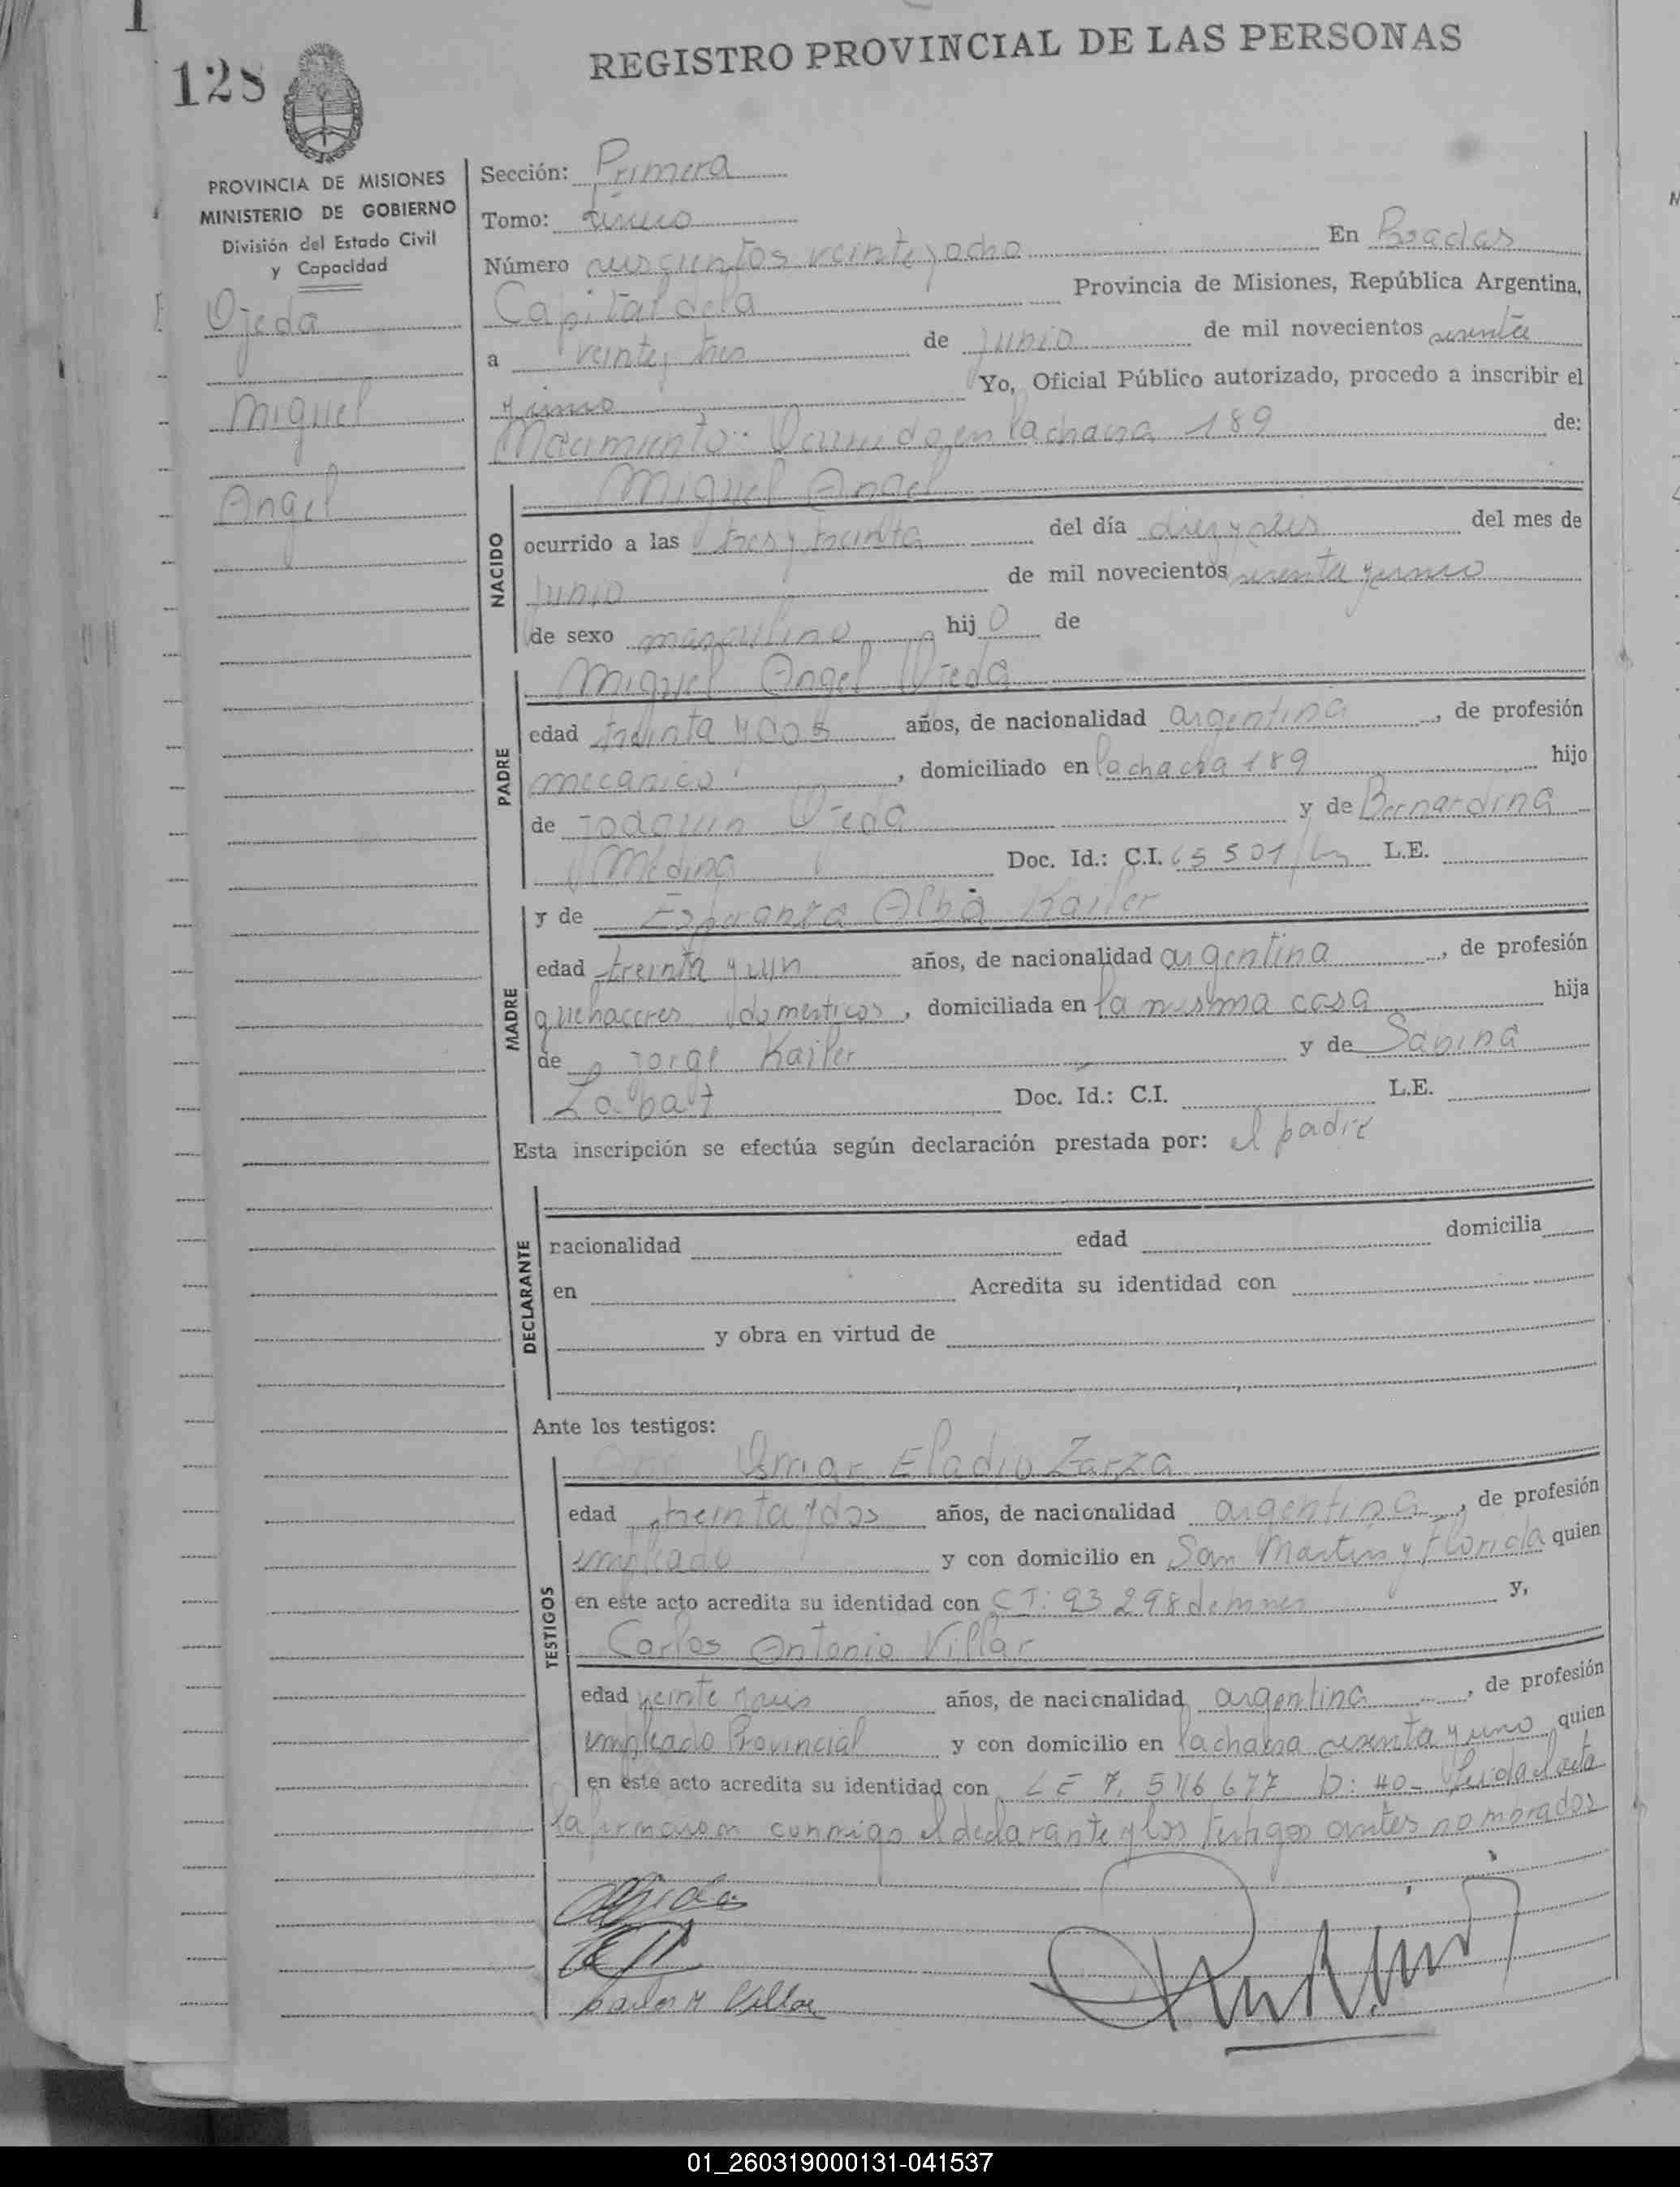 128
REGISTRO PROVINCIAL DE LAS PERSONAS
PROVINCIA DE MISIONES
MINISTERIO DE GOBIERNO
División del Estado Civil
y Capacidad
Ojeda
Miguel
Angel
Sección: Primera
Tomo:
Número veinte y ocho En Posadas
Capital de la Provincia de Misiones, República Argentina,
a veinte y tres de junio de mil novecientos
Yo, Oficial Público autorizado, procedo a inscribir el
Nacimiento: Ocurrido en la chacra 189 de:
NACIDO
Miguel Angel
ocurrido a las tres y treinta del día del mes de
junio de mil novecientos
de sexo masculino hijo de
PADRE
Miguel Angel Ojeda
edad treinta y dos años, de nacionalidad argentina, de profesión
mecanico, domiciliado en la chacra 189 hijo
de Joaquin Ojeda y de Bernardina
Medina Doc. Id.: C.I. 65 501 L.E.
MADRE
y de Esperanza Alba Kailer
edad treinta y un años, de nacionalidad argentina, de profesión
quehaceres domesticos, domiciliada en la misma casa hija
de Jorge Kailer y de Sabina
Doc. Id.: C.I. L.E.
Esta inscripción se efectúa según declaración prestada por: el padre
DECLARANTE
nacionalidad edad domicilia
en Acredita su identidad con
y obra en virtud de
Ante los testigos:
TESTIGOS
Omar Eladio Zarza
edad treinta y dos años, de nacionalidad argentina, de profesión
empleado y con domicilio en San Martin y Florida quien
en este acto acredita su identidad con CI: 93 298 y,
Carlos Antonio Villar
edad años, de nacionalidad argentina, de profesión
empleado Provincial y con domicilio en la chacra y uno quien
en este acto acredita su identidad con LE 7. 546 677
la firmaron conmigo el declarante y los testigos antes nombrados
01_260319000131-041537